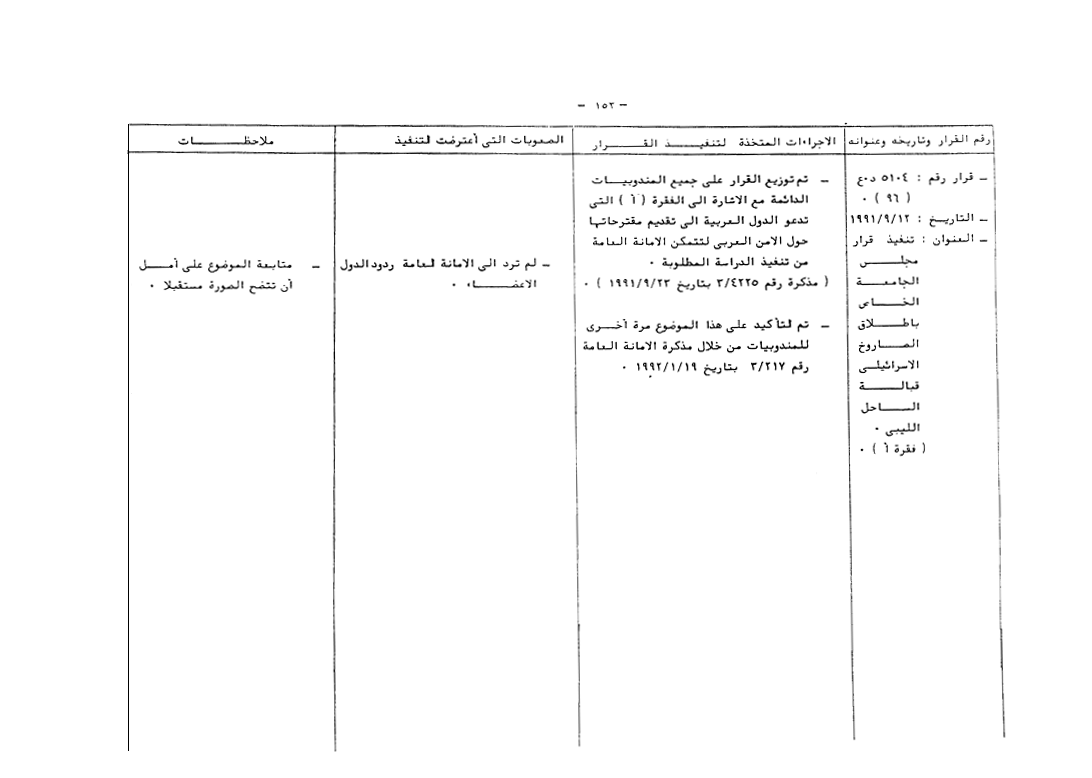 - ١٥٢ -
رقم القرار وتاريخه وعنوانه
ـ قرار رقم : ٥١٠٤ د٠ع
( ٩٦ ) ٠
ـ التاريخ : ١٩٩١/٩/١٢
ـ العنوان : تنفيذ قرار
مجلس
الجامعة
الخاص
باطلاق
الصاروخ
الاسرائيلى
قبالة
الساحل
الليبى ٠
( فقرة أ ) ٠
الاجراءات المتخذة لتنفيذ القرار
ـ تم توزيع القرار على جميع المندوبيات
الدائمة مع الاشارة الى الفقرة ( أ ) التى
تدعو الدول العربية الى تقديم مقترحاتها
حول الامن العربى لتتمكن الامانة العامة
من تنفيذ الدراسة المطلوبة ٠
( مذكرة رقم ٣/٤٢٢٥ بتاريخ ١٩٩١/٩/٢٣ ) ٠
ـ تم لتأكيد على هذا الموضوع مرة أخرى
للمندوبيات من خلال مذكرة الامانة العامة
رقم ٣/٢١٧ بتاريخ ١٩٩٢/١/١٩ ٠
الصعوبات التى أعترضت لتنفيذ
ـ لم ترد الى الامانة لعامة ردود الدول
الاعضاء ٠
ملاحظات
ـ متابعة الموضوع على أمل
أن تتضح الصورة مستقبلا ٠